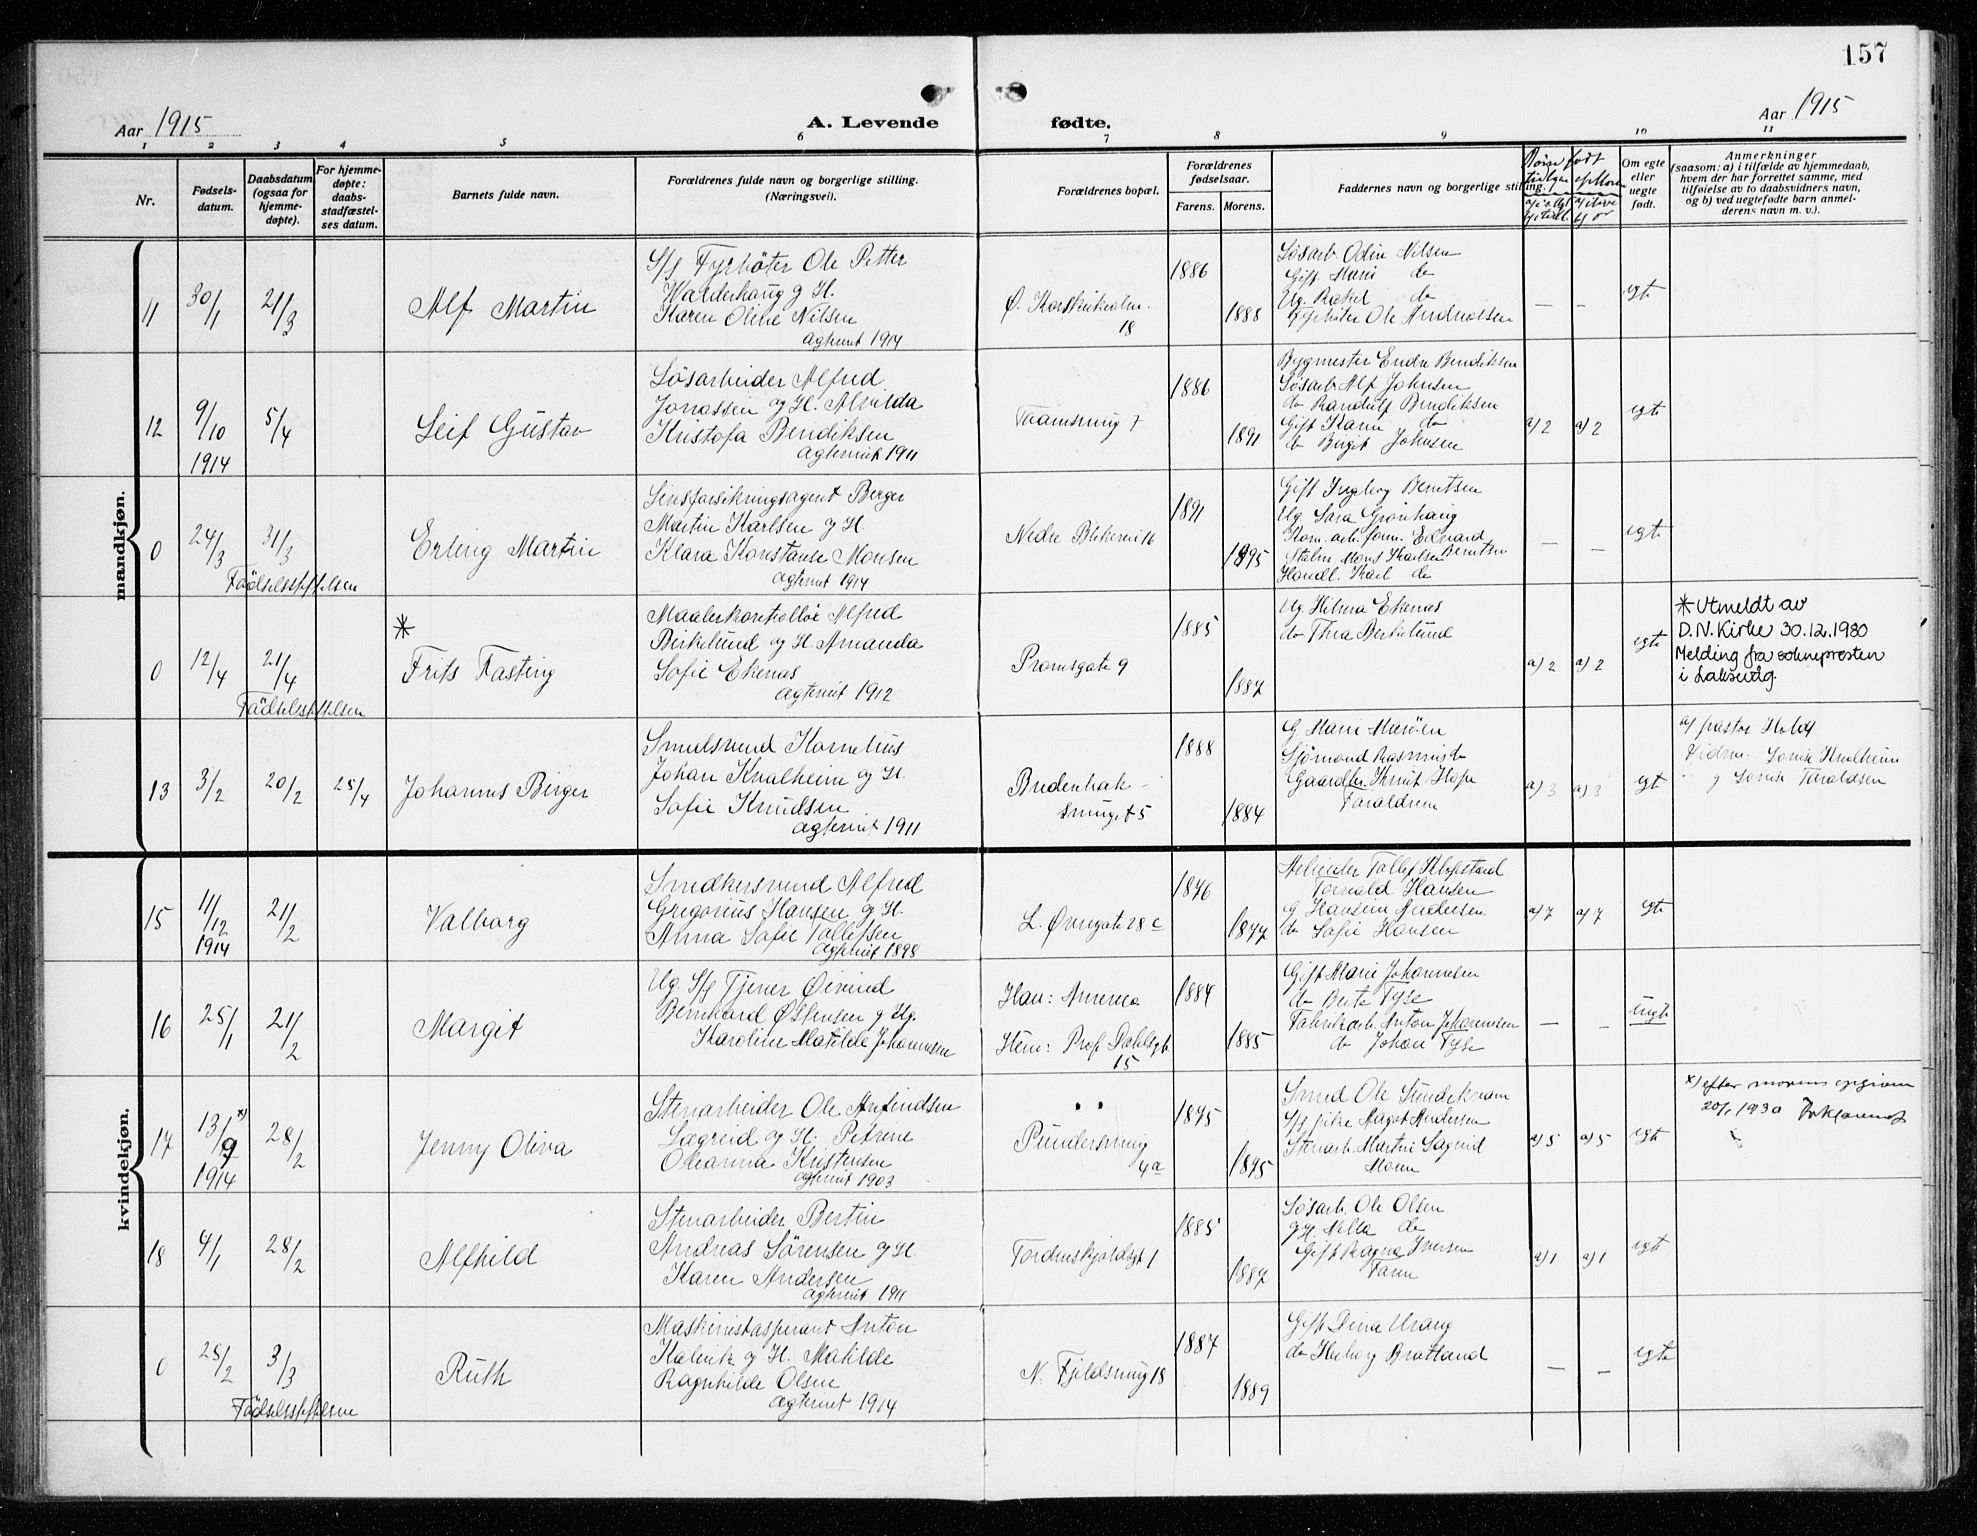 157
Aar 1915
A. Levende
fødte.
Aar 1915
1 2 3 4 5 6 7 8 9 10 11
Nr.
Fødsels-
datum.
Daabsdatum
(ogsaa for
hjemme-
døpte).
For hjemme-
døpte:
daabs-
stadfæstel-
ses datum.
Barnets fulde navn.
Forældrenes fulde navn og borgerlige stilling.
(Næringsvei).
Forældrenes bopæl.
Forældrenes
fødselsaar.
Farens. Morens.
Faddernes navn og borgerlige stilling.
født
Om egte
eller
uegte
født.
Anmerkninger
(saasom: a) i tilfælde av hjemmedaab,
hvem der har forrettet samme, med
tilføielse av to daabsvidners navn,
og b) ved uegtefødte barn anmel-
derens navn m. v.).
mandkjøn.
11
30/1
21/3
Alf Martin
S/f Fyrbøter Ole Petter
Walderhaug og H.
Karen Oline Nilsen
agteviet 1914
18
1886
1888
Løsarb. Odin Nilsen
Gift Marie do
Ug. Rakel do
Fyrbøter Ole Andreassen
— —
egte
12
9/10
1914
5/4
Leif Gustav
Løsarbeider Alfred
Jonassen og H. Alvilda
Kristofa Bendiksen
agteviet 1911
7
1886
1891
Bygmester Endre Bendiksen
Løsarb. Alf Johnsen
do Randulf Bendiksen
Gift Karen do
do Birgit Johnsen
a) 2 a) 2
egte
0
24/3
31/3
Fødselsstiftelsen
Erling Martin
Livsforsikringsagent Berger
Martin Karlsen og H
Klara Konstanse Monsen
agteviet 1914
Nedre Blekevei 16
1891
1895
Gift Ingeborg Berntsen
Ug Sara Grønhaug
Kom. arb. form. Edvard
Berntsen
Mons Karlsen
Handl. Karl do
— —
egte
0
12/4
21/4
Fødselsstiftelsen
*
Frits Fasting
Maalerkontrollør Alfred
Birkelund og H. Amanda
Sofie Ekenæs
agteviet 1912
Promsgate 9
1885
1887
Ug. Ekenæs
do Thea Birkelund
a) 2 a) 2
egte
* Utmeldt av
D.N. Kirke 30.12.1980
Melding fra soknepresten
i Laksevåg.
13
3/2
20/2
25/4
Johannes Birger
Smedsvend Kornelius
Johan Kvalheim og H.
Sofie Knudsen
agteviet 1911
smuget 5
1888
1884
G Marie
Sjømand Rasmus do
Gaardbr. Knut Hope
Taraldsen
a) 3 a) 3
egte
a) pastor
Vidne: Kvalheim
" og Taraldsen
kvindekjøn.
15
11/12
1914
21/2
Valborg
Snedkersvend Alfred
Gregorius Hansen og H.
Anna Sofie Tollefsen
agteviet 1898
L. Øvregate 28 c
1876
1877
Arbeider Tollef
Torvald Hansen
g Hansine Andersen
do Sofie Hansen
a) 7 a) 7
egte
16
25/1
21/2
Margit
Ug. S/f Tjener Øivind
Bernhard Østensen og Ug.
Karoline Matilde Johannesen
Han: Amerika
Hun: Prof. Dahlsgt.
15
1884
1885
Gift Marie Johannesen
do Berte Tyse
Fabrikarb. Anton Johannesen
do Johan Tyse
— —
uegte
17
13/9 *)
1914
28/2
Jenny Oliva
Stenarbeider Ole Anfindsen
Lægreid og H. Petrine
Oleanna Kristensen
agteviet 1903
Pundersmug
4a
1875
1875
Smed Ole
S/f pike Magot Andersen
Stenarb. Martin Lægreid
Moren
a) 5 a) 5
egte
*) efter morens opgivende
1930
18
4/1
28/2
Alfhild
Stenarbeider Bertin
Andreas Sørensen og H.
Karen Andersen
agteviet 1911
Tordenskjoldsgt 1
1885
1887
Løsarb. Ole Olsen
og H. Milla do
Gift Ragna Iversen
Faren
a) 1 a) 1
egte
0
25/2
3/3
Fødselsstiftelsen
Ruth
Maskinistaspirant Anton
Kalvik og H. Matilde
Ragnhilde Olsen
agteviet 1914
N. Fjeldsmug 18
1887
1889
Gift Dina Urang
do Herborg Bratland
— —
egte